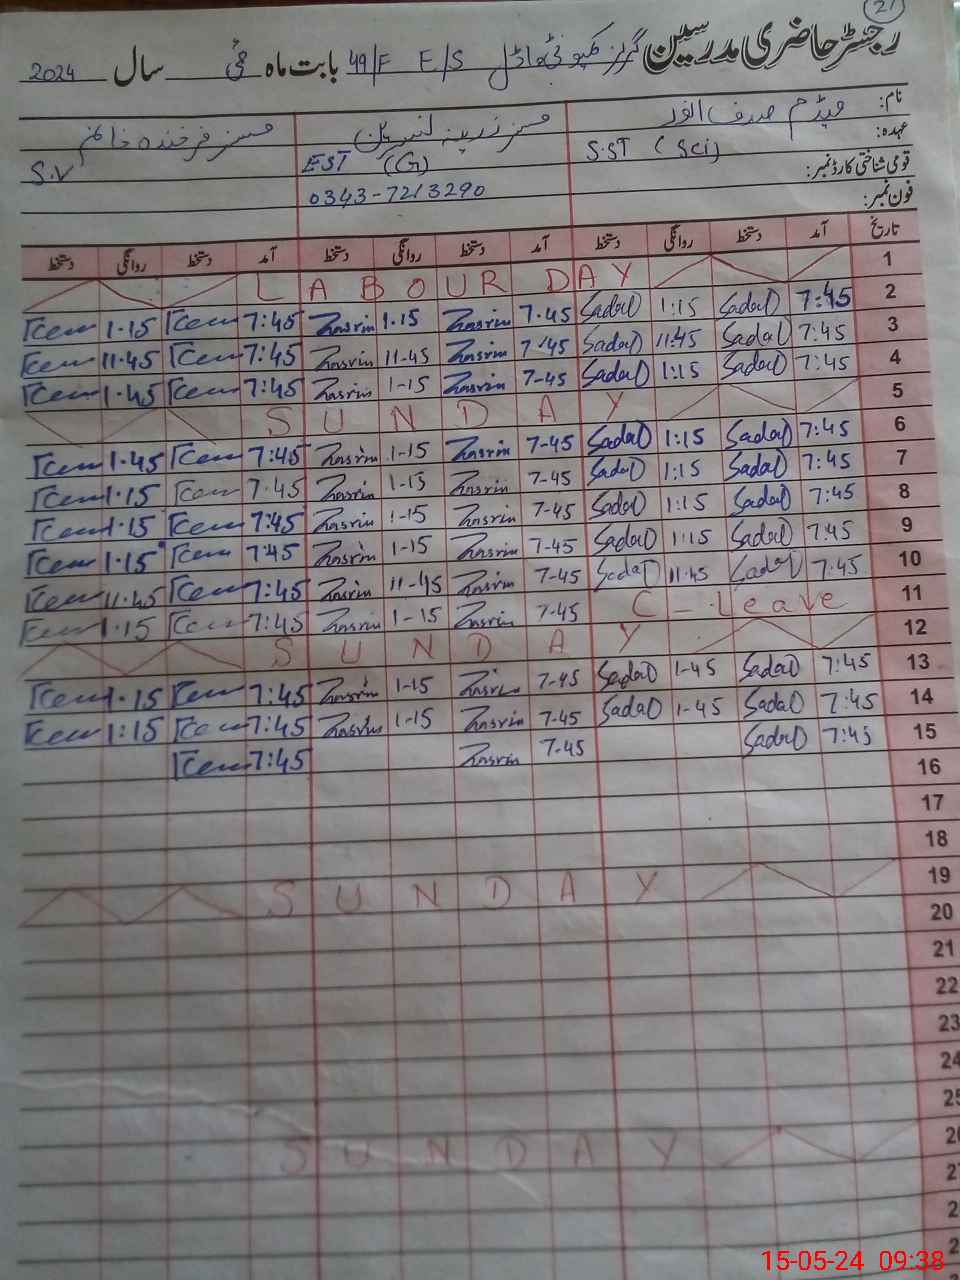 21
رجسٹر حاضری مدرسین گرلز کمیونٹی ماڈل 49/F E/S بابت ماہ مئی سال 2024
نام: میڈم صدف انور مسز زرینہ نسرین مسز فرخندہ خانم
عہدہ: S.ST (Sci) EST (G) S.V
قومی شناختی کارڈ نمبر:
فون نمبر: 0343-7213290
تاریخ آمد دستخط روانگی دستخط آمد دستخط روانگی دستخط آمد دستخط روانگی دستخط
1 LABOUR DAY
2 7:45 Sadaf 1:15 Sadaf 7-45 Nasrin 1-15 Nasrin 7:45 1-15
3 7:45 Sadaf 11:45 Sadaf 7-45 Nasrin 11-45 Nasrin 7:45 11-45
4 7:45 Sadaf 1:15 Sadaf 7-45 Nasrin 1-15 Nasrin 7:45 1-45
5 SUNDAY
6 7:45 Sadaf 1:15 Sadaf 7-45 Nasrin 1-15 Nasrin 7:45 1-45
7 7:45 Sadaf 1:15 Sadaf 7-45 Nasrin 1-15 Nasrin 7-45 1-15
8 7:45 Sadaf 1:15 Sadaf 7-45 Nasrin 1-15 Nasrin 7:45 1-15
9 7:45 Sadaf 1:15 Sadaf 7-45 Nasrin 1-15 Nasrin 7:45 1-15
10 7:45 Sadaf 11:45 Sadaf 7-45 Nasrin 11-45 Nasrin 7:45 11-45
11 C-Leave 7-45 Nasrin 1-15 Nasrin 7:45 1-15
12 SUNDAY
13 7:45 Sadaf 1-45 Sadaf 7-45 Nasrin 1-15 Nasrin 7:45 1-15
14 7:45 Sadaf 1-45 Sadaf 7-45 Nasrin 1-15 Nasrin 7:45 1:15
15 7:45 Sadaf 7-45 Nasrin 7:45
16
17
18
19 SUNDAY
20
21
22
23
24
25
26 SUNDAY
27
15-05-24 09:38